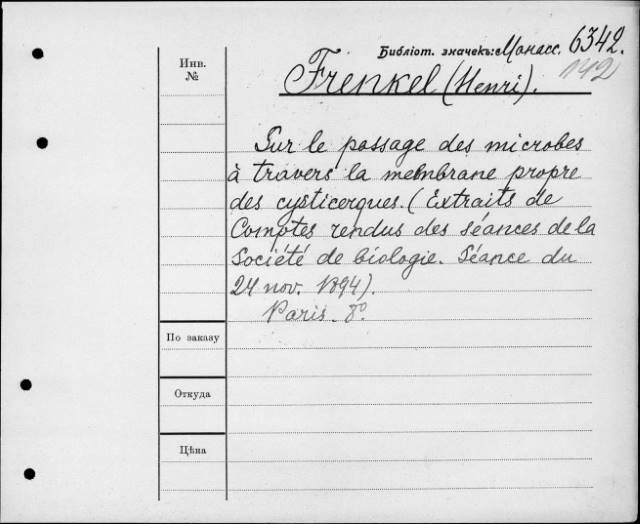 Инв.
№
Библіот. значекъ: Монасс. 6342.
142
Frenkel (Henri).
Sur le passage des microbes
à travers la membrane propre
des cysticerques. (Extraits de
Comptes rendus des séances de la
Société de biologie. Séance du
24 nov. 1894).
Paris. 8º
По заказу
Откуда
Цѣна